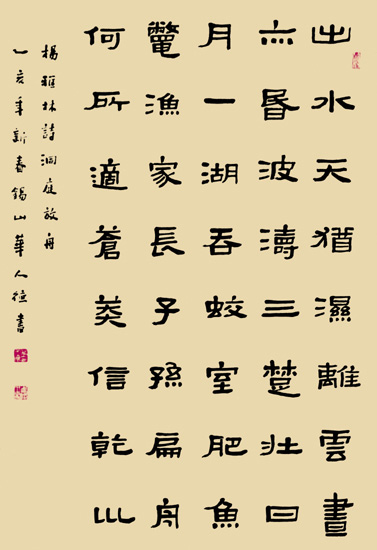 出水天猶濕離雲晝
亦昏波濤三楚壯日
月一湖吞蛟室肥魚
鼈漁家長子孫扁舟
何所適蒼莽信乾巛
楊林詩洞庭放舟
乙亥年新春錫山華人德書